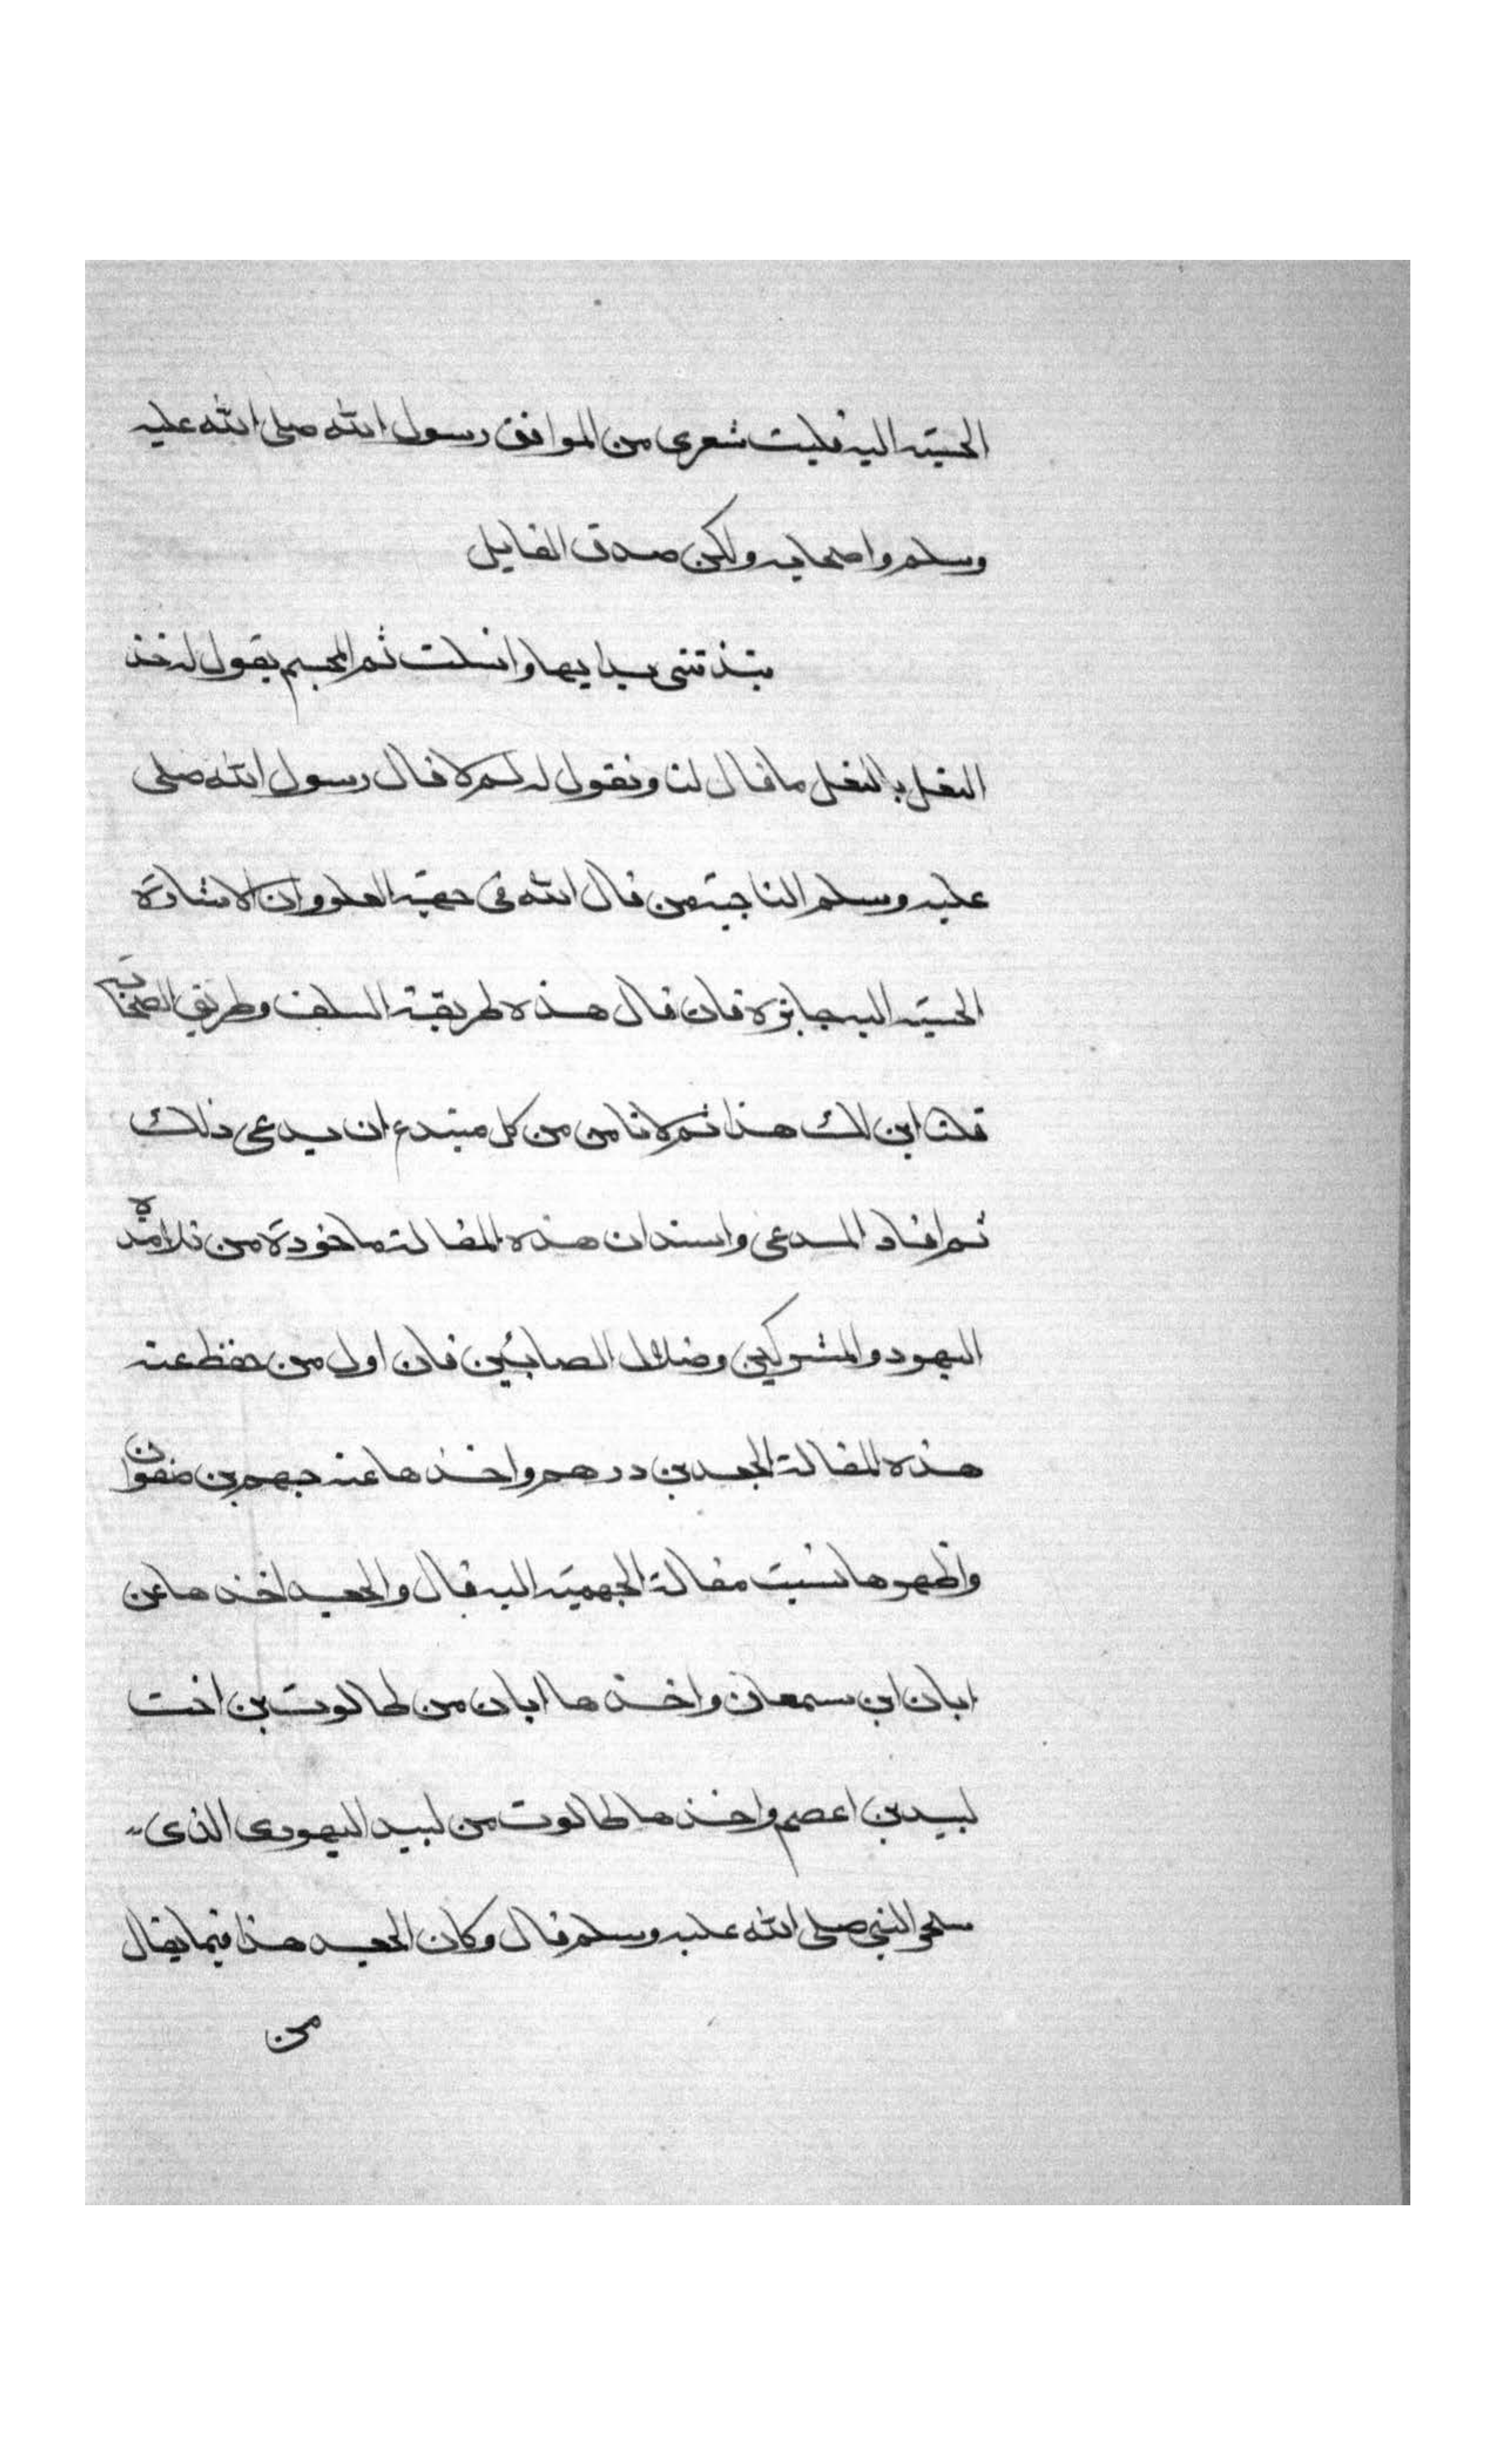 الحسيه اليه فليت شعرى من الموافق رسول الله صلى الله عليه
وسلم واصحابه ولكن صدق القايل
بدايها وانسلت ثم المجسم يقول له خذ
النعل بالنعل ما قال لنا ونقول له لم لا قال رسول الله صلى
عليه وسلم الناجية من قال الله فى جهة العلو وان الاشارة
الحسيه اليه جايزة فان قال هذه طريقة السلف وطريق الصحابة
قلنا اين لك هذا ثم لا نامن من كل مبتدع ان يدعى ذلك
ثم افاد المدعى واسند ان هذه المقالة ماخوذة من تلامذه
اليهود والمشركين وضلال الصابئين فان اول من حفظ عنه
هذه المقالة الجعد بن درهم واخذها عنه جهم بن صفوان
واظهرها نسبت مقالة الجهميه اليه قال والجعد اخذها عن
ابان ابن سمعان واخذها ابان من طالوت بن اخت
لبيد بن اعصم واخذها طالوت من لبيد اليهودى الذى
سحر النبي صلى الله عليه وسلم قال وكان الجعد هذا فيما يقال
من